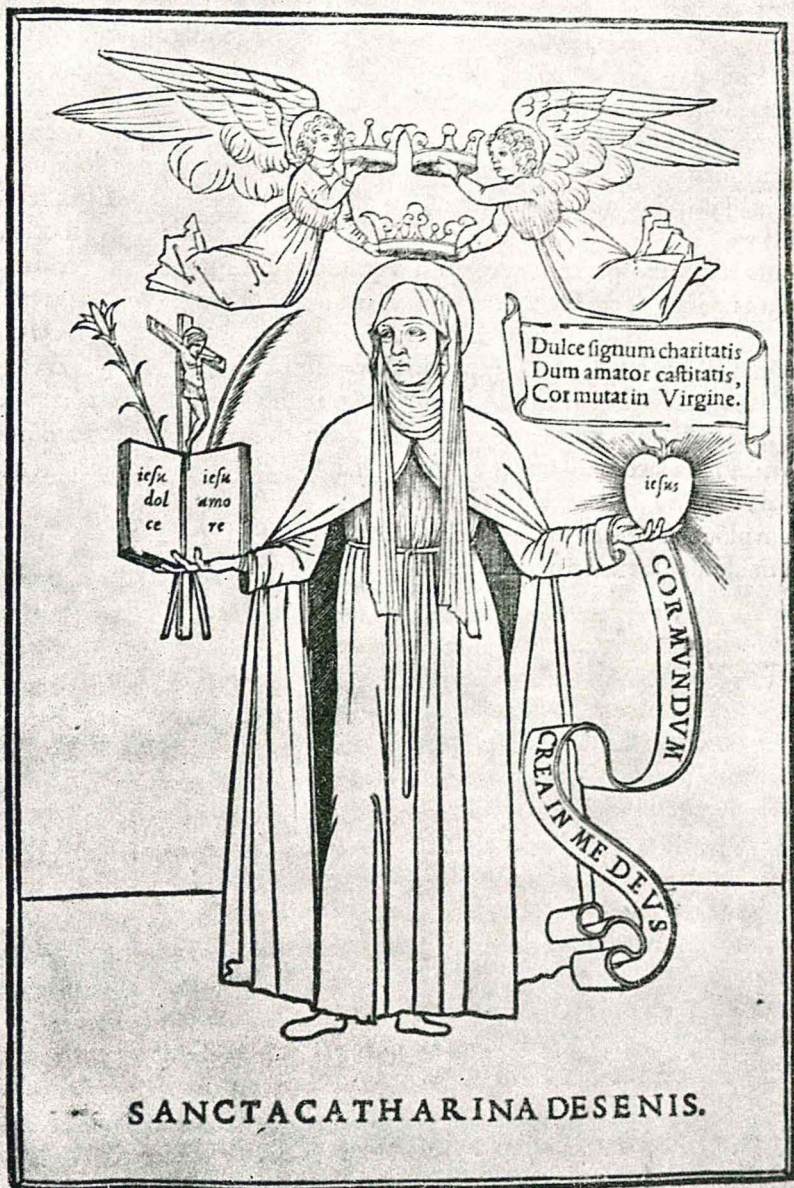 Dulce ſignum charitatis
Dum amator caſtitatis,
Cor mutat in Virgine.
ieſu
dol
ce
ieſu
amo
re
ieſus
COR MVNDVM
CREA IN ME DEVS
SANCTA CATHARINA DE SENIS.